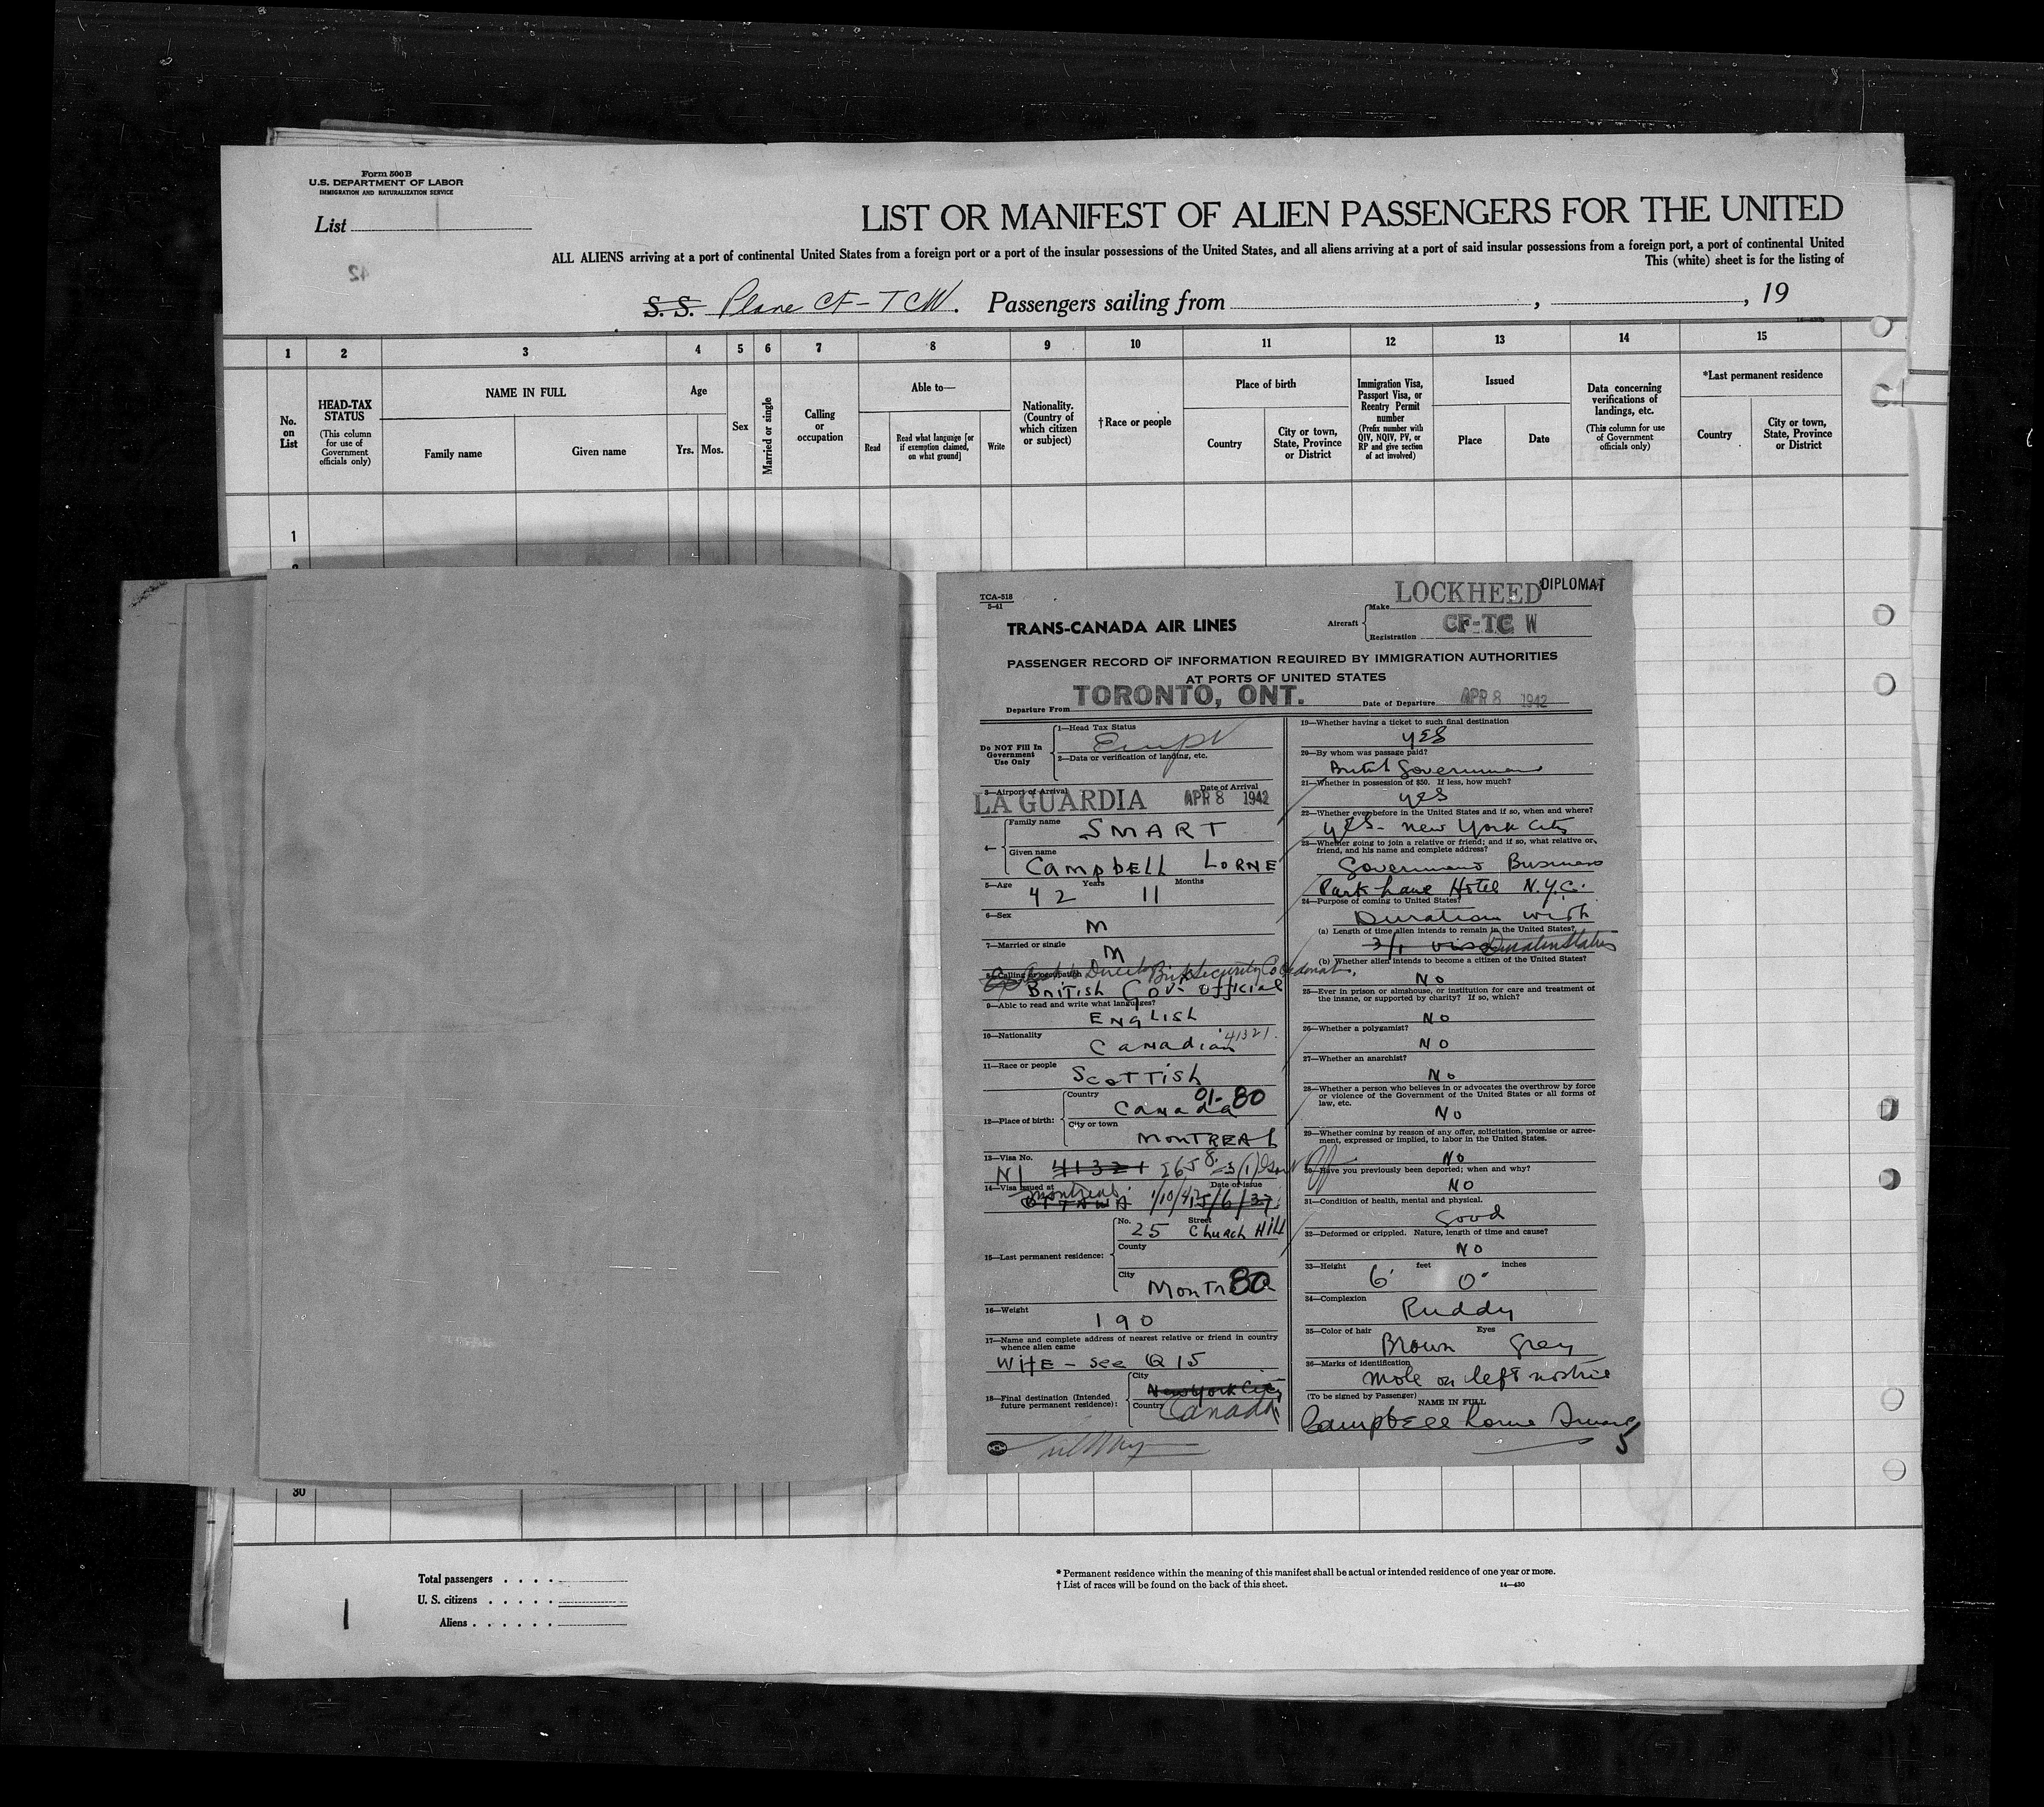 Form 500 B
U.S. DEPARTMENT OF LABOR
IMMIGRATION AND NATURALIZATION SERVICE
List 1
LIST OR MANIFEST OF ALIEN PASSENGERS FOR THE UNITED
ALL ALIENS arriving at a port of continental United States from a foreign port or a port of the insular possessions of the United States, and all aliens arriving at a port of said insular possessions from a foreign port, a port of continental United
This (white) sheet is for the listing of
42
S. S. Plane CF-TCW. Passengers sailing from , , 19
1 2 3 4 5 6 7 8 9 10 11 12 13 14 15
No. on List
HEAD-TAX STATUS
(This column for use of Government officials only)
NAME IN FULL
Family name
Given name
Age
Yrs. Mos.
Sex
Married or single
Calling or occupation
Able to—
Read
Read what language [or if exemption claimed, on what ground]
Write
Nationality. (Country of which citizen or subject)
†Race or people
Place of birth
Country
City or town, State, Province or District
Immigration Visa, Passport Visa, or Reentry Permit number
(Prefix number with QIV, NQIV, PV, or RP and give section of act involved)
Issued
Place
Date
Data concerning verifications of landings, etc.
(This column for use of Government officials only)
*Last permanent residence
Country
City or town, State, Province or District
1
TCA-518
5-41
TRANS-CANADA AIR LINES
DIPLOMAT
Aircraft
Make LOCKHEED
Registration CF-TC W
PASSENGER RECORD OF INFORMATION REQUIRED BY IMMIGRATION AUTHORITIES
AT PORTS OF UNITED STATES
Departure From TORONTO, ONT. Date of Departure APR 8 1942
Do NOT Fill In
Government
Use Only
1—Head Tax Status
2—Data or verification of landing, etc.
3—Airport of Arrival Date of Arrival
LA GUARDIA APR 8 1942
4—
Family name SMART
Given name Campbell LORNE
5—Age 42 Years 11 Months
6—Sex M
7—Married or single M
8—Calling or occupation
British Gov't Official
9—Able to read and write what languages?
ENGLISH
10—Nationality
Canadian 41321
11—Race or people
SCOTTISH
12—Place of birth:
Country Canada 01-80
City or town MONTREAL
13—Visa No.
N1 41321
14—Visa issued at Date of issue
Montreal OTTAWA 1/10/42
15—Last permanent residence:
No. 25 Street Church Hill
County
City Montreal 80
16—Weight
190
17—Name and complete address of nearest relative or friend in country
whence alien came
WIFE - see Q 15
18—Final destination (Intended
future permanent residence):
City New York City
Country Canada
19—Whether having a ticket to such final destination
YES
20—By whom was passage paid?
British Government
21—Whether in possession of $50. If less, how much?
yes
22—Whether ever before in the United States and if so, when and where?
yes - New York City
23—Whether going to join a relative or friend; and if so, what relative or
friend, and his name and complete address?
Government Business
Park Lane Hotel N.Y.C.
24—Purpose of coming to United States?
Duration with
(a) Length of time alien intends to remain in the United States?
3/1 visa Duration Status
(b) Whether alien intends to become a citizen of the United States?
NO
25—Ever in prison or almshouse, or institution for care and treatment of
the insane, or supported by charity? If so, which?
NO
26—Whether a polygamist?
NO
27—Whether an anarchist?
No
28—Whether a person who believes in or advocates the overthrow by force
or violence of the Government of the United States or all forms of
law, etc.
NO
29—Whether coming by reason of any offer, solicitation, promise or agree-
ment, expressed or implied, to labor in the United States.
No
30—Have you previously been deported; when and why?
NO
31—Condition of health, mental and physical.
Good
32—Deformed or crippled. Nature, length of time and cause?
NO
33—Height 6' feet 0" inches
34—Complexion
Ruddy
35—Color of hair Eyes
Brown Grey
36—Marks of identification
mole on left nostril
(To be signed by Passenger)
NAME IN FULL
Campbell Lorne Smart
5
30
Total passengers . . . .
U. S. citizens . . . . .
Aliens . . . . . .
1
* Permanent residence within the meaning of this manifest shall be actual or intended residence of one year or more.
† List of races will be found on the back of this sheet.
14—430